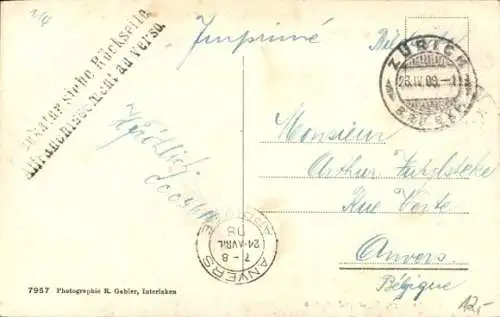 Imprimé
Frankatur siehe Rückseite.
Affranchissement au verso.
ZÜRICH
23.IV.08.-11
Monsieur
Arthur
Rue Verte
Anvers
Belgique
ANVERS
7-8
24 AVRIL
08
7957 Photographie R. Gabler, Interlaken
12,-